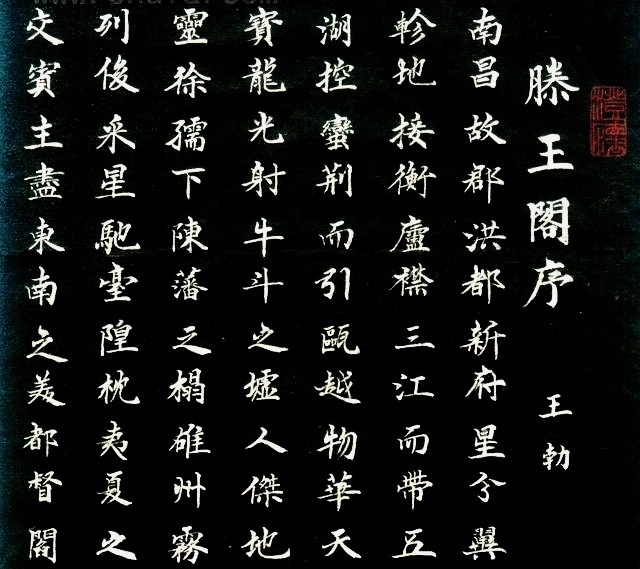 滕王閣序
王勃
南昌故郡洪都新府星分翼
軫地接衡廬襟三江而帶五
湖控蠻荆而引甌越物華天
寶龍光射牛斗之墟人傑地
靈徐孺下陳藩之榻雄州霧
列俊采星馳臺隍枕夷夏之
交賓主盡東南之美都督閻